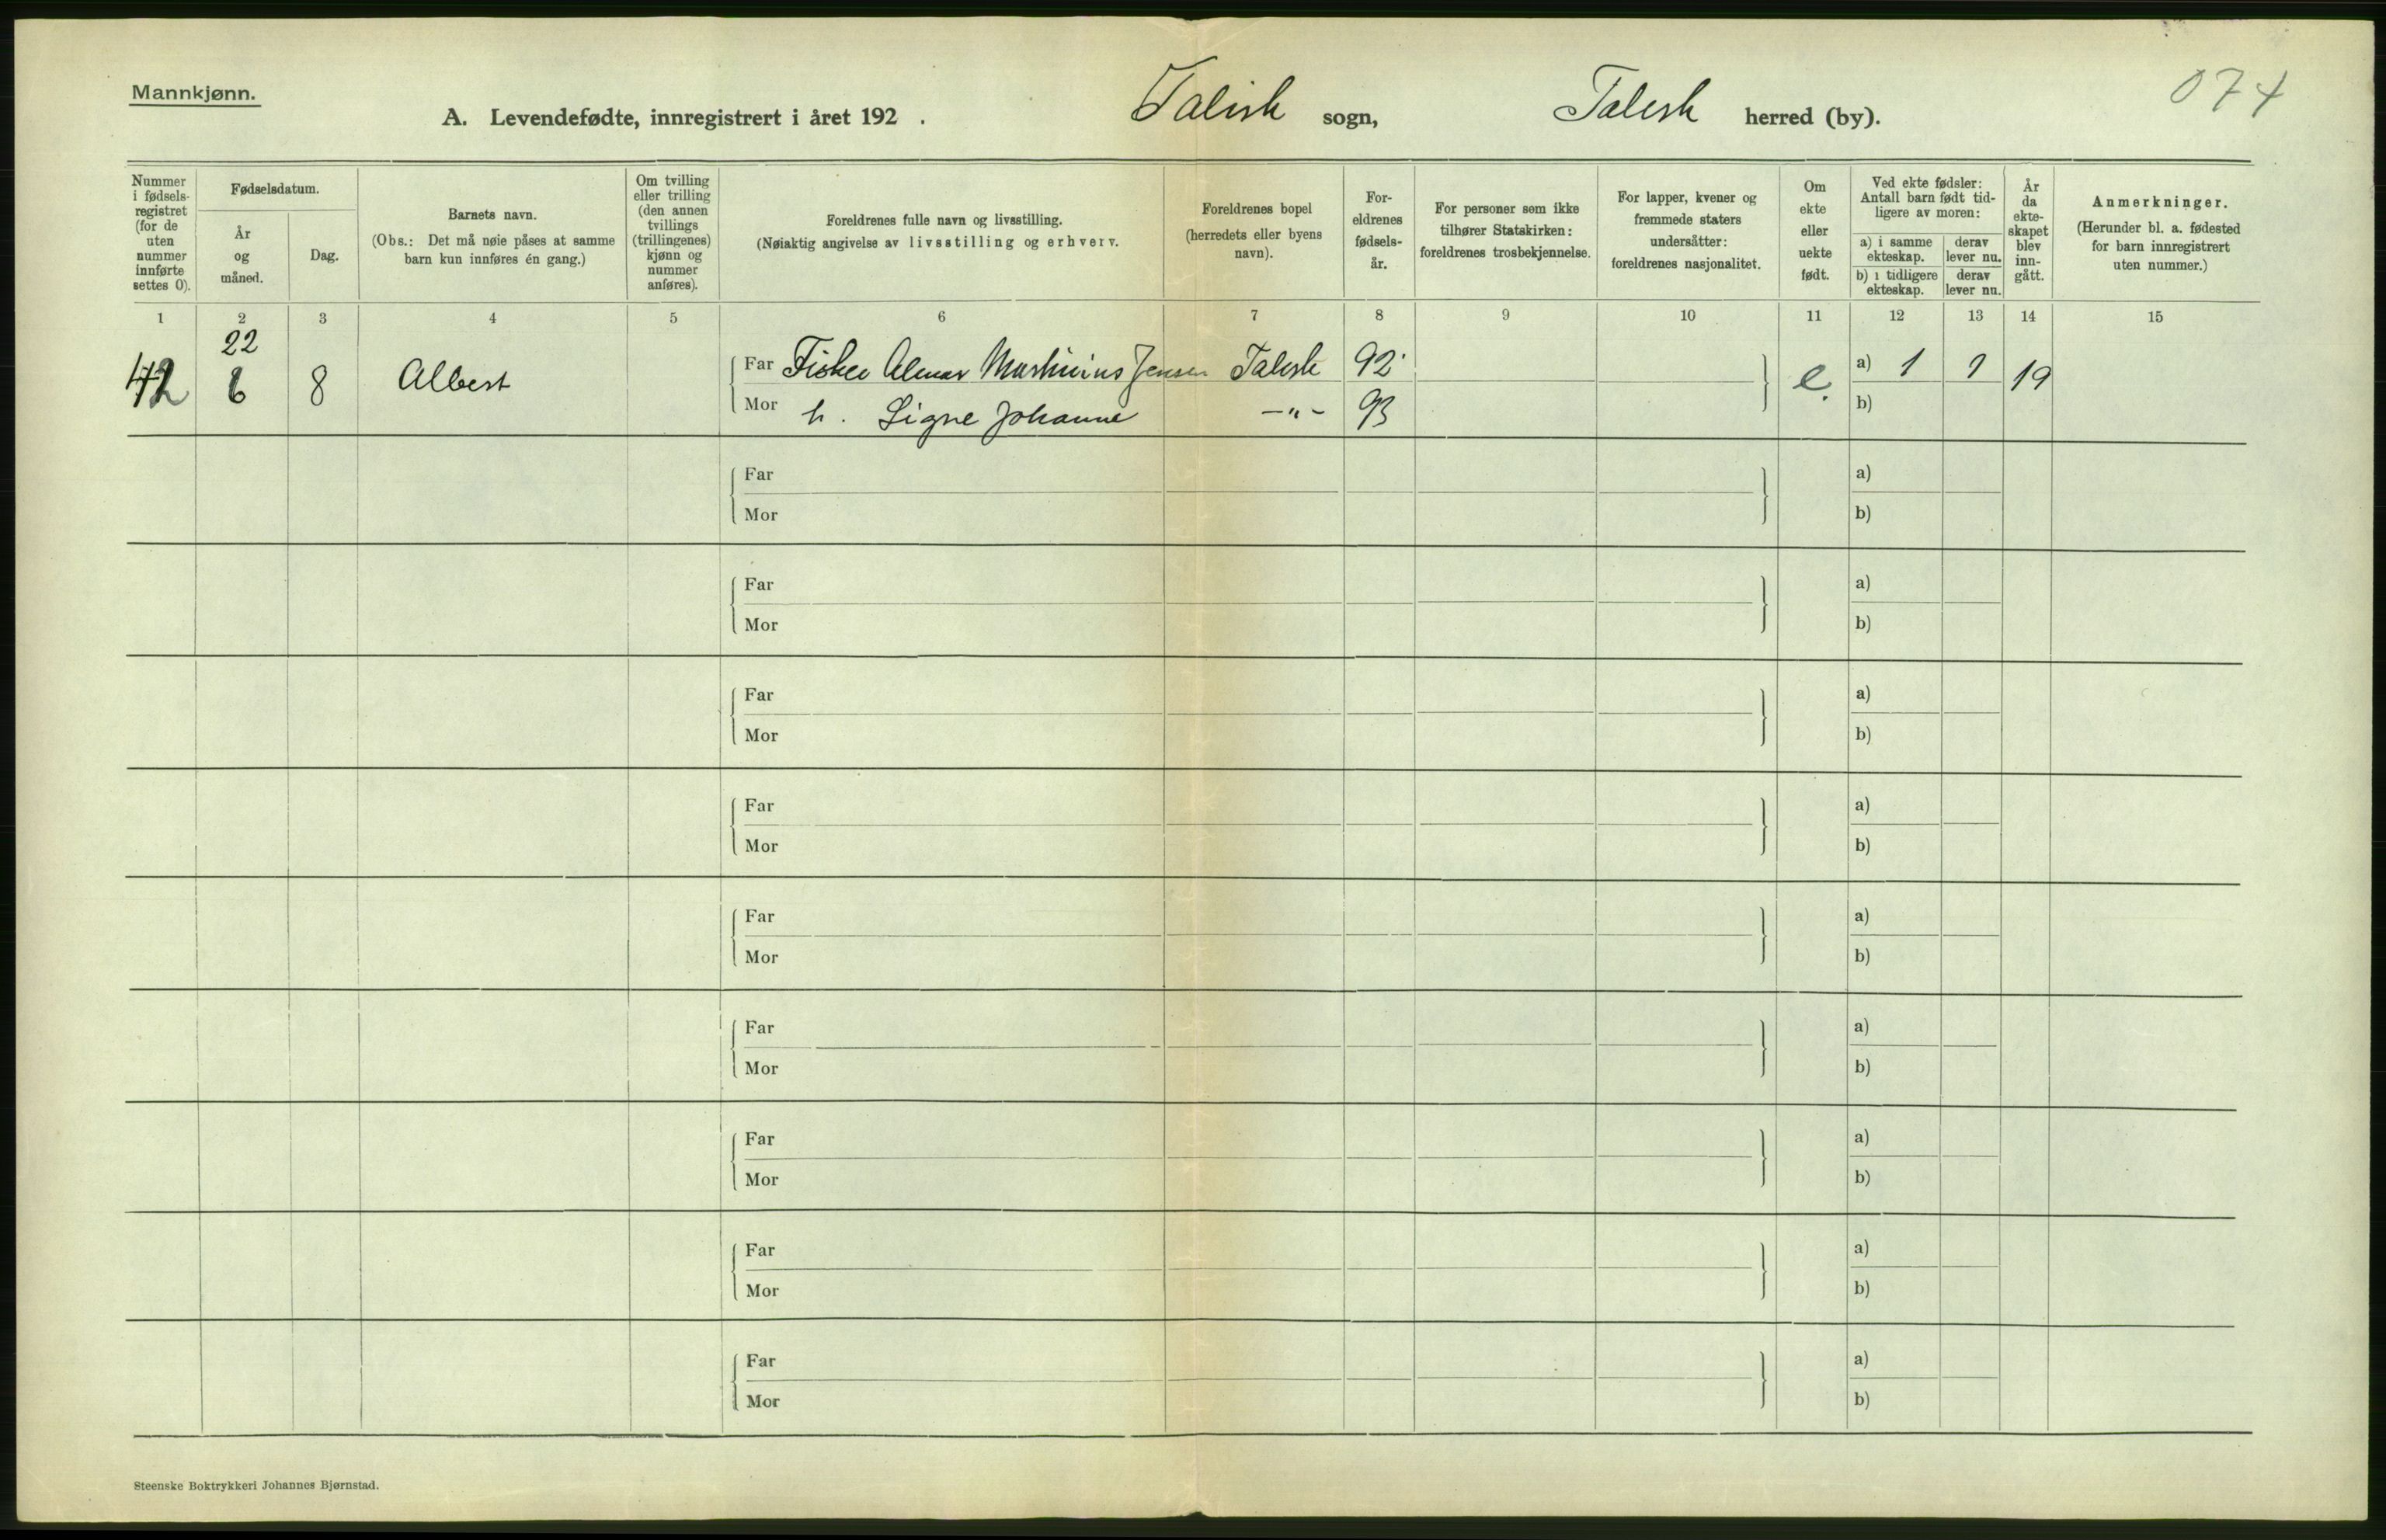 Mannkjønn.
A. Levendefødte, innregistrert i året 192 . Talvik sogn, Talvik herred (by).
074
Nummer i fødsels-registret (for de uten nummer innførte settes 0).
Fødselsdatum.
År og måned.
Dag.
Barnets navn.
(Obs.: Det må nøie påses at samme barn kun innføres én gang.)
Om tvilling eller trilling (den annen tvillings (trillingenes) kjønn og nummer anføres).
Foreldrenes fulle navn og livsstilling.
(Nøiaktig angivelse av livsstilling og erhverv.
Foreldrenes bopel (herredets eller byens navn).
For-eldrenes fødsels-år.
For personer som ikke tilhører Statskirken: foreldrenes trosbekjennelse.
For lapper, kvener og fremmede staters undersåtter: foreldrenes nasjonalitet.
Om ekte eller uekte født.
Ved ekte fødsler: Antall barn født tid-ligere av moren:
a) i samme ekteskap.
derav lever nu.
b) i tidligere ekteskap.
derav lever nu.
År da ekte-skapet blev inn-gått.
Anmerkninger.
(Herunder bl. a. fødested for barn innregistrert uten nummer.)
1 2 3 4 5 6 7 8 9 10 11 12 13 14 15
22
42 6 8 Albert
Far Fisker Almar Jensen Talvik 92
Mor h. Signe Johanne -"- 93
e. a) 1 1 19
b)
Far a)
Mor b)
Far a)
Mor b)
Far a)
Mor b)
Far a)
Mor b)
Far a)
Mor b)
Far a)
Mor b)
Far a)
Mor b)
Far a)
Mor b)
Far a)
Mor b)
Steenske Boktrykkeri Johannes Bjørnstad.